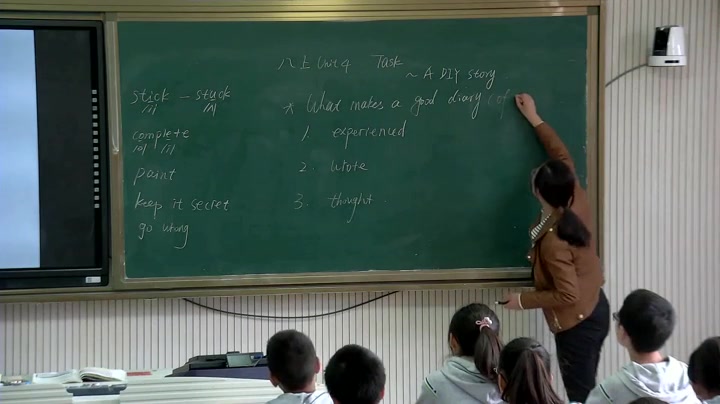 八上 Unit 4 Task
~ A DIY story
stick — stuck
/ɪ/ /ʌ/
complete
/ə/ /iː/
paint
keep it secret
go wrong
* What makes a good diary (of
1. experienced
2. wrote
3. thought